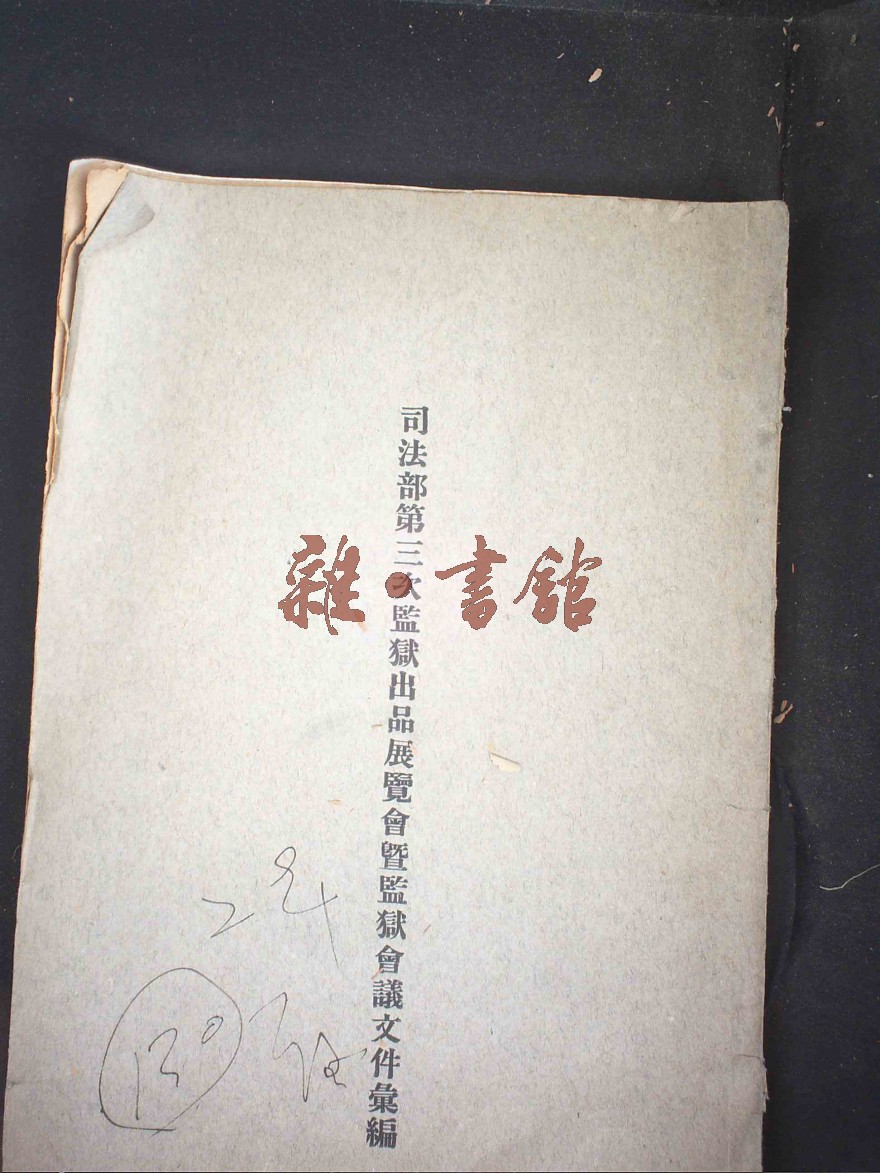 司法部第三次監獄出品展覽會暨監獄會議文件彙編
雜·書館